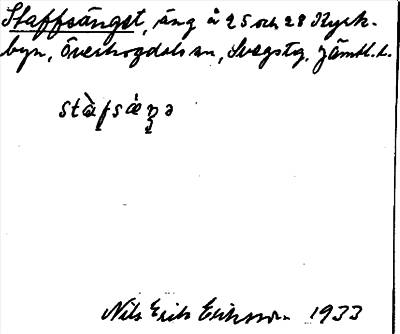 Staffsänget, äng å 25 och 28 Kyrk-
byn, Överhogdals sn, Svegs tg, Jämtl. l.
stàfsæŋə
Nils Erik Eriksson 1933